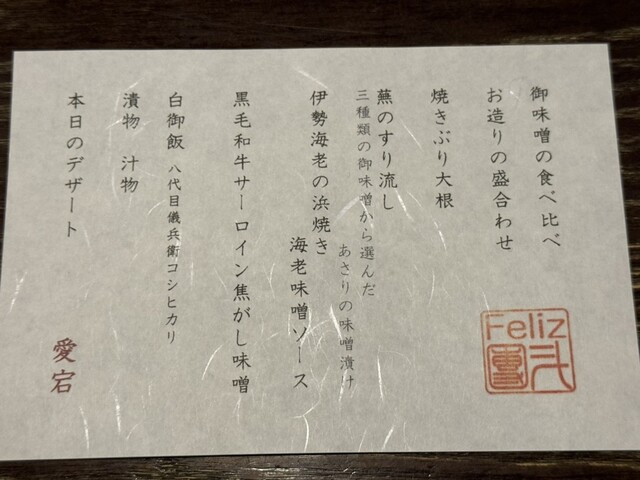 御味噌の食べ比べ
お造りの盛合わせ
焼きぶり大根
蕪のすり流し
三種類の御味噌から選んだ
あさりの味噌漬け
伊勢海老の浜焼き
海老味噌ソース
黒毛和牛サーロイン焦がし味噌
白御飯 八代目儀兵衛コシヒカリ
漬物 汁物
本日のデザート
愛宕
Feliz